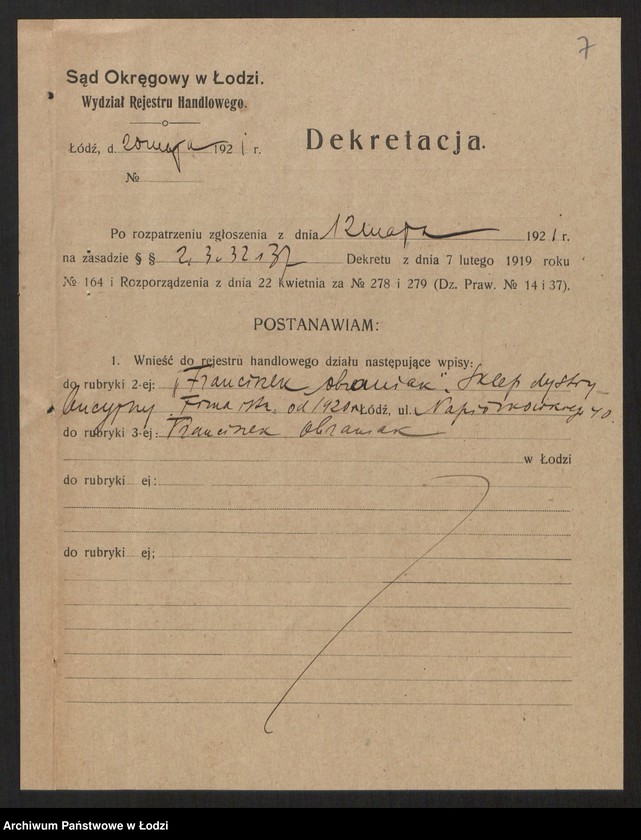 7
Sąd Okręgowy w Łodzi.
Wydział Rejestru Handlowego.
Łódź, d. 20 maja 1921 r.
Dekretacja.
№
Po rozpatrzeniu zgłoszenia z dnia 12 maja 1921 r.
na zasadzie § § 2, 3, 32 i 37 Dekretu z dnia 7 lutego 1919 roku
№ 164 i Rozporządzenia z dnia 22 kwietnia za № 278 i 279 (Dz. Praw. № 14 i 37).
POSTANAWIAM:
1. Wnieść do rejestru handlowego działu następujące wpisy:
do rubryki 2-ej: „Franciszek Obraniak". Sklep dystry-
bucyjny Firma istn. od 1920 r. Łódź, ul. Napiórkowskiego 40.
do rubryki 3-ej: Franciszek Obraniak
w Łodzi
do rubryki ej:
do rubryki ej;
Archiwum Państwowe w Łodzi